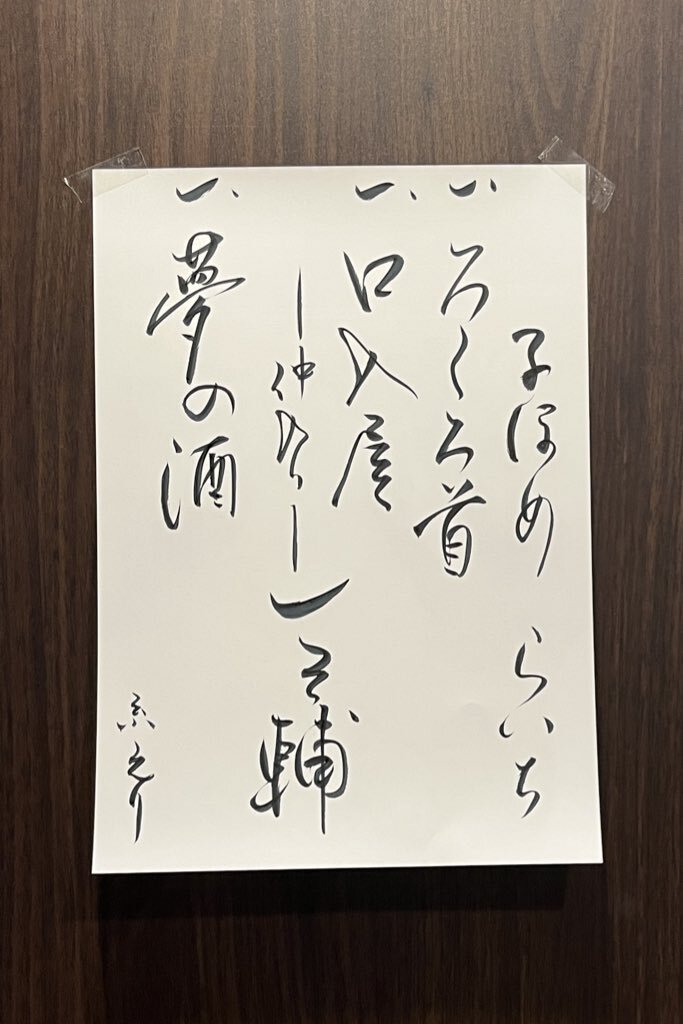 子ほめ らいち
一、ろくろ首
一、口入屋
―仲入り―
一之輔
一、夢の酒